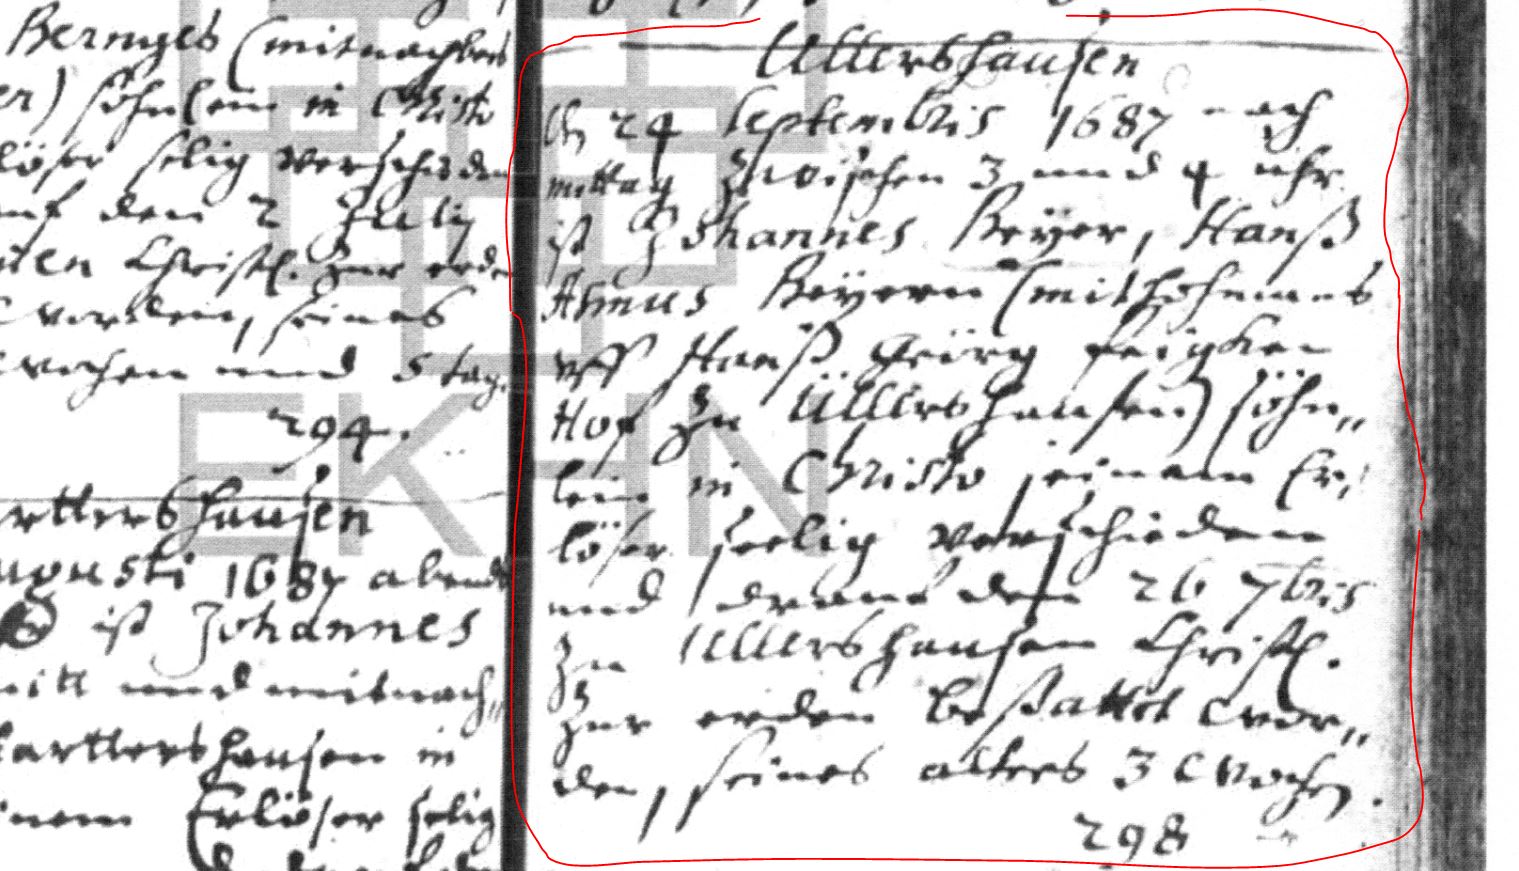 Bernges (mitnachbers
er) söhnlein in Christo
löser selig verschieden
auf den 2 Julij
Christl. zur erden
worden, seines
wochen und 5 tag.
294.
arttershausen
Augusti 1687 abends
ist Johannes
und mitnach„
Hartershausen in
inem Erlöser selig
Ullershausen
24 Septembris 1687 nach
mittag zwischen 3 und 4 uhr
ist Johannes Beyer, Hanß
Asmus Beyern (mitsohnens
uff Hanß Geörg
Hof zu Üllershausen) söhn„
lein in Christo seinem Er„
löser seelig verschieden
und drauf den 26 7bris
zu Ullershausen Christl.
zur erden bestattet wor„
den, seines alters 3 wochen.
298
EKHN